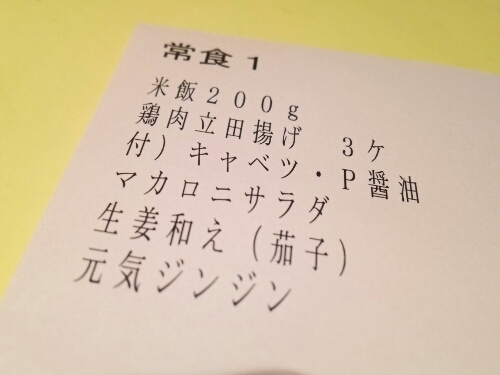 常食1
米飯200g
鶏肉立田揚げ 3ケ
付)キャベツ・P醤油
マカロニサラダ
生姜和え(茄子)
元気ジンジン